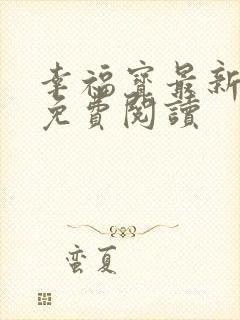 幸福寶最新
免費閱讀
蛮夏